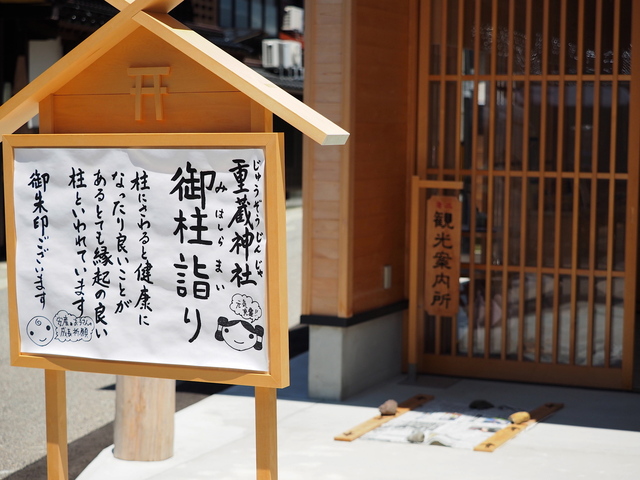 重蔵神社
じゅうぞうじんじゃ
御柱詣り
みはしらまい
柱にさわると健康に
なったり良いことが
あるとても縁起の良い
柱といわれています
御朱印ございます
観光案内所